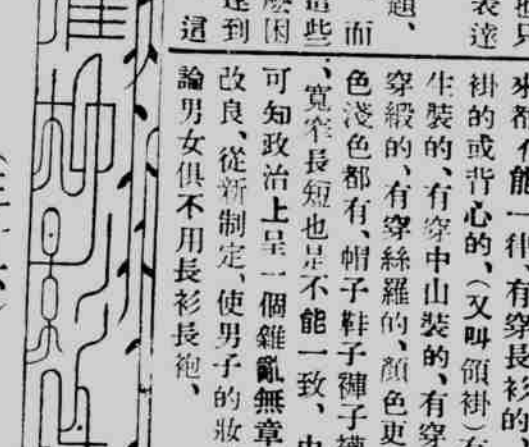 表達
題、
而
這些
麼困
達到
這
來都不能一律、有穿長衫的、
褂的或背心的、(又叫領褂)有
生裝的、有穿中山裝的、有穿
穿緞的、有穿絲羅的、顏色更
色淺色都有、帽子鞋子褲子襪
、寬窄長短也是不能一致、由
可知政治上呈一個雜亂無章
改良、從新制定、使男子的妝
論男女俱不用長衫長袍、